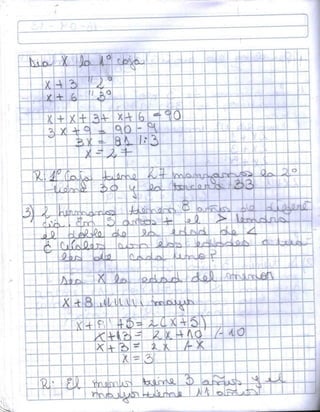 Sea X la 1º caja
X + 3 " 2º
X + 6 " 3º
X + X + 3 + X + 6 = 90
3X + 9 = 90 - 9
3X = 81 1:3
X = 27
R. 1º Caja tiene 27 manzanas la 2º
tiene 30 y la tercera 33
3) 2 hermanos tienen 8 años de diferen
cia En 5 años + el > tendra
el doble de la edad de <
¿ Cuales son los edades actua
les de cada uno?
Sea X la edad del menor
X + 8 mayor
X + 8 + 5 = 2(X + 5)
X + 13 = 2X + 10 / - 10
X + 3 = 2X / - X
X = 3
R: El menor tiene 3 años y el
mayor tiene 11 años